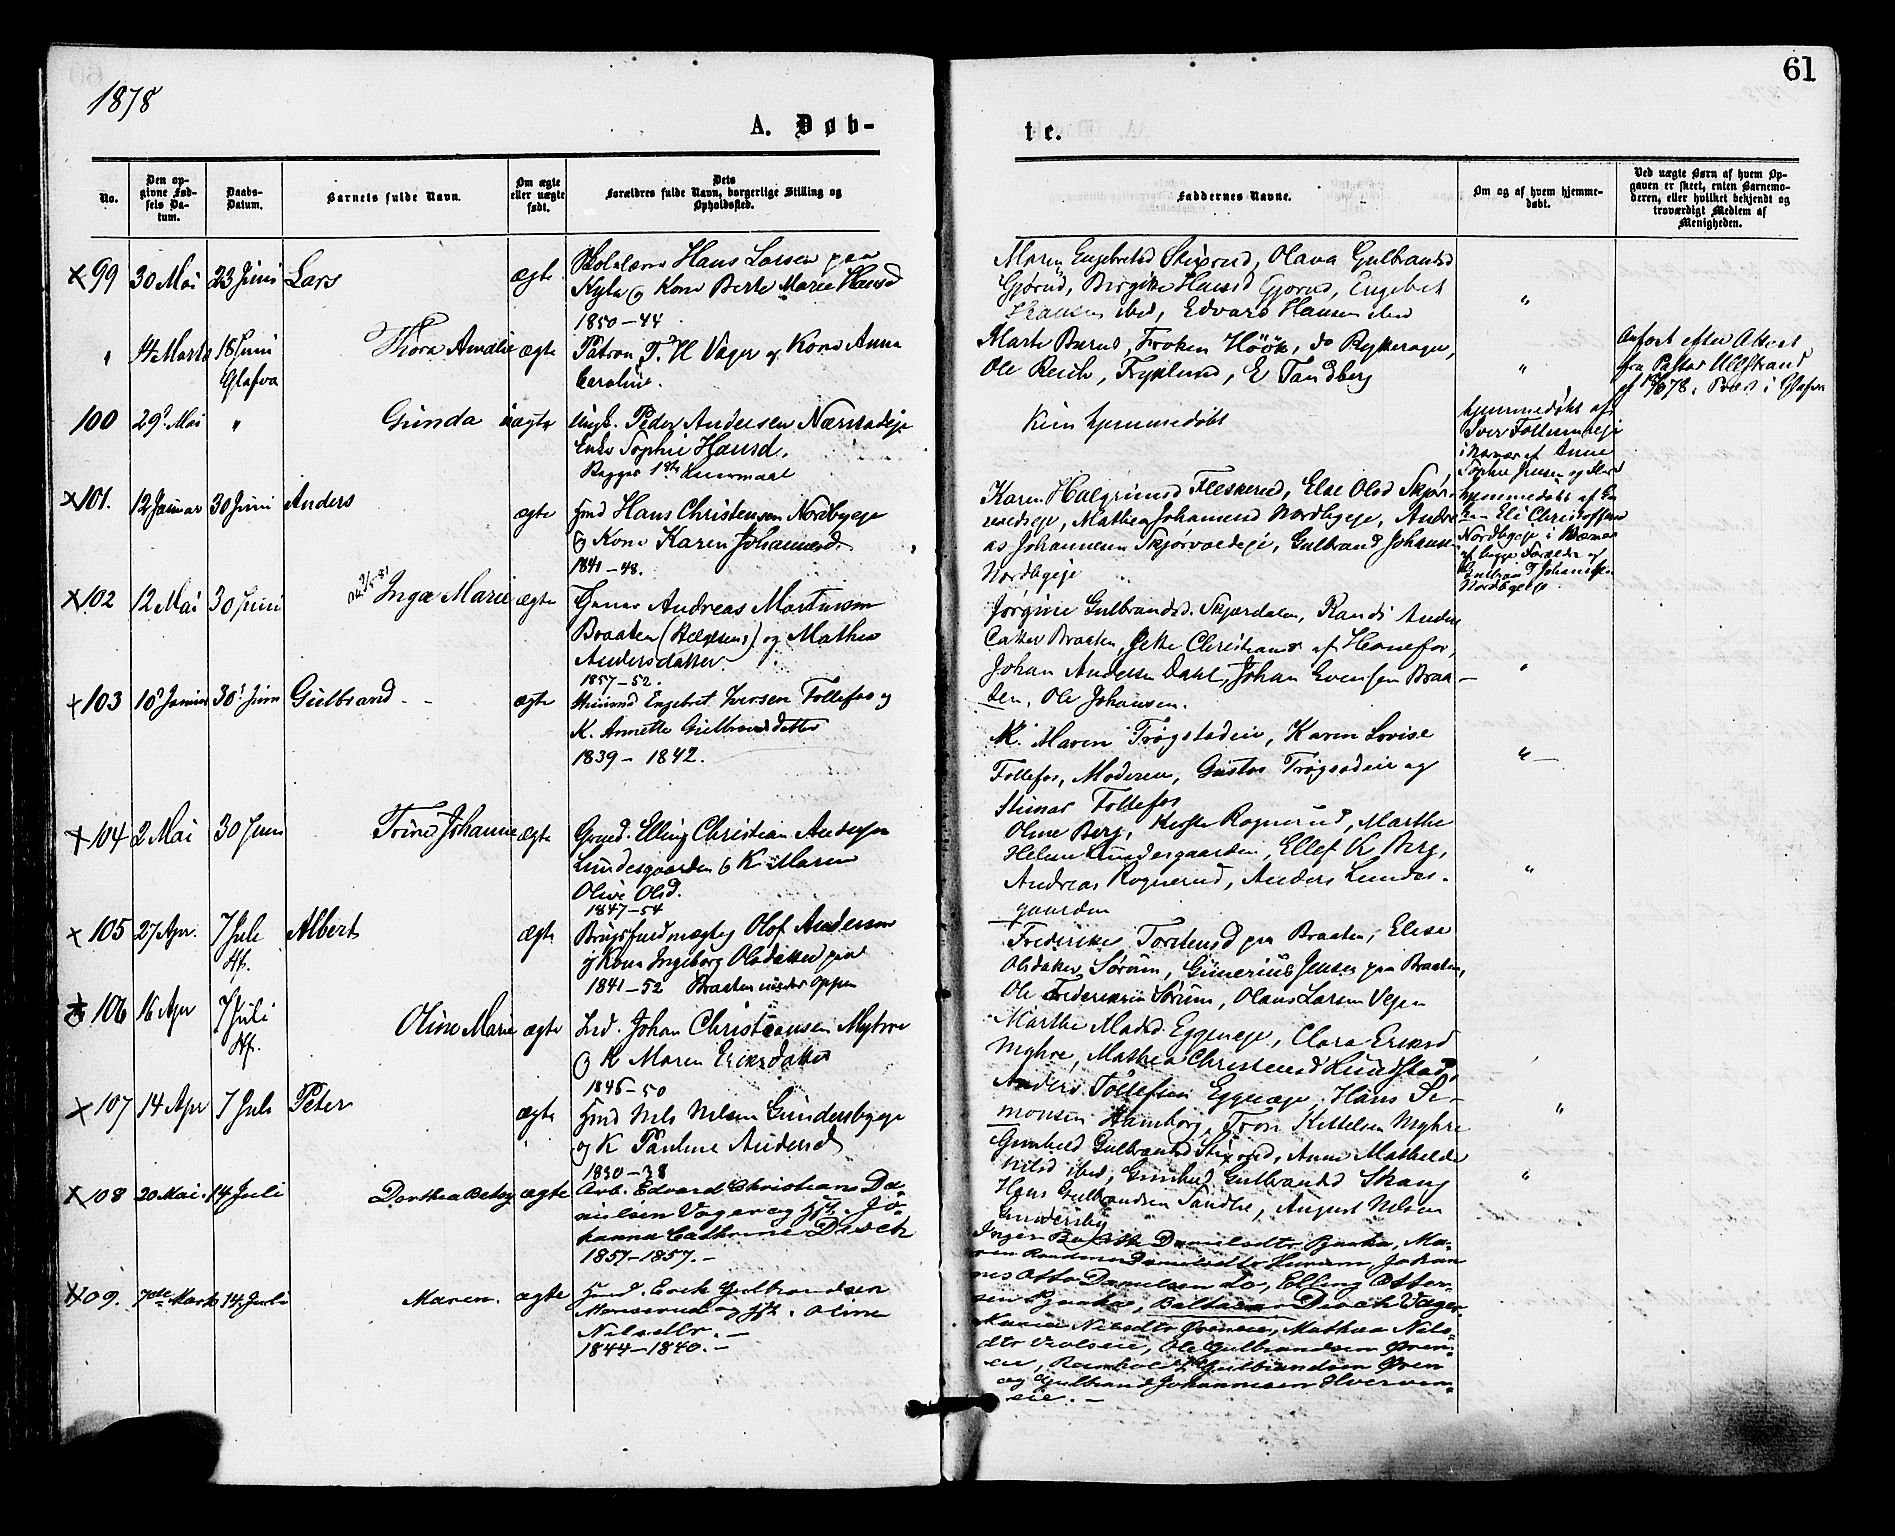 1878
61
A. Døb-
te.
No.
Den op-
givne Fød-
sels Da-
tum.
Daabs-
Datum.
Barnets fulde Navn.
Om ægte
eller uægte
født.
Dets
Forældres fulde Navn, borgerlige Stilling og
Opholdssted.
Faddernes Navne.
Om og af hvem hjemme-
døbt.
Ved uægte Børn af hvem Op-
gaven er skeet, enten Barnemo-
deren, eller hvilket bekjendt og
troværdigt Medlem af
Menigheden.
99 30 Mai 23 Juni Lars ægte
Hans Larsen paa
Kone Berte Marie Hansd
1850-44
Maren Engebretsd Olava Gulbrandsd
Gjørud, Birgitte Hansd Gjørud, Engebret
Hansen ibid, Edvard Hansen ibid
" 14 Marts 18 Juni
Glafva
Thora Amalie ægte
Patron T. H Vager og Kone Anna
Caroline.
Marte Frøken Höök, do
Ole Fryklund, E Tandberg
Anført efter Attest
fra Pastor Ullstrand
Præst i Glafva
100 29 Mai " Gunda uægte
Ungk. Peder Andersen
Enke Sophie Hansd.
Begges 1ste
Kun hjemmedøbt
hjemmedøbt af
Iver
i Nærvær af Anne
Sophie Jensen og
101. 12 Januar 30 Juni Anders ægte
Hmd Hans Christensen Nordbyeje
og Kone Karen Johannesd.
1841-48.
Karen Halgrimsd Fleskerud, Else Olsd Skjør-
Mathea Johannesd Nordbyeje, Andre-
as Johannesen Gulbrand Johanse-
Nordbyeje
hjemmedøbt af
Eli Christoffersen
Nordbyeje i Nærvær
af begge Forældre og
Gulbrand Johansen
Nordbyeje
102 12 Mai 30 Juni Inga Marie ægte
Andreas Martinsen
Braaten og Mathea
Andersdatter
1857-52.
Jørgine Gulbrandsd. Skjærdalen, Randi Anders
datter Braaten, Jette Christians af Hønefos,
Johan Andersen Dahl, Johan Evensen Braa-
ten, Ole Johansen.
103 10 Januar 30 Juni Gulbrand ægte
Husmd Engebret Iversen Follefos og
K. Annette Gulbrandsdatter
1839-1842.
K. Maren Trøgstadeie, Karen Lovise
Follefos, Moderen, Gustav Trøgstadeie og
Steinar Follefos
104 2 Mai 30 Juni Trine Johanne ægte
Gaard. Elling Christian Andersen
Lundesgaarden og K. Maren
Olive Olsd.
1847-54
Oline Berg, Rognerud, Marthe
Helene Lundesgaarden, Ellef K Berg,
Andreas Rognerud, Anders Lundes-
gaarden
105 27 Apr. 7 Juli
Hf.
Albert ægte
Brugsfuldmægtig Olof Andersen
og Kone Ingeborg Olsdatter paa
1841-52 Braaten under Oppen
Frederikke Torstensd paa Braaten, Elise
Olsdatter Sørum, Gunerius Jensen paa Braaten,
Ole Frederiksen Sørum, Olaus Larsen Vejen
106 16 Apr 7 Juli
Hf.
Oline Marie ægte
Johan Christiansen Myhre
og K Maren Eriksdatter
1846-50
Marthe Madsd Eggeneje, Clara Eriksd
Myhre, Mathea Christensd Lundstad,
Anders Tollefsen Eggeneje, Hans Si-
monsen Hamborg, Tron Kittelsen Myhre
107 14 Apr 7 Juli Peter ægte
Hmd Nils Nilsen Gundersbyeje
og K Pauline Andersd
1830-38
Gunhild Gulbrandsd Anne Mathilde
Nilsd ibid, Gunhild Gulbrandsd Skaug
Hans Gulbrandsen August Nilsen
Gundersby
108 20 Mai. 14 Juli Dorthea Betsy ægte
Arb. Edvard Christians Da-
nielsen Vager og Hst. Jo-
hanna Cathrine Disch
1857-1857.-
Inger Danielsdtr Bjerke, Ma-
ren Danielsdtr Johan-
nes Otto Danielsen do, Elling Otter-
sen Bjerke, Baltazar Disch Vager.
109. 7de Marts 14 Juli Maren. ægte
Husmd. Erik Gulbrandsen
og Hst. Oline
Nilsdtr.-
1844-1840.-
Maria Nilsdtr Mathea Nils-
dtr Ole Gulbrandsen
Reinholdt Gulbrandsen
og Gulbrand Johannesen Hverven-
eie.-